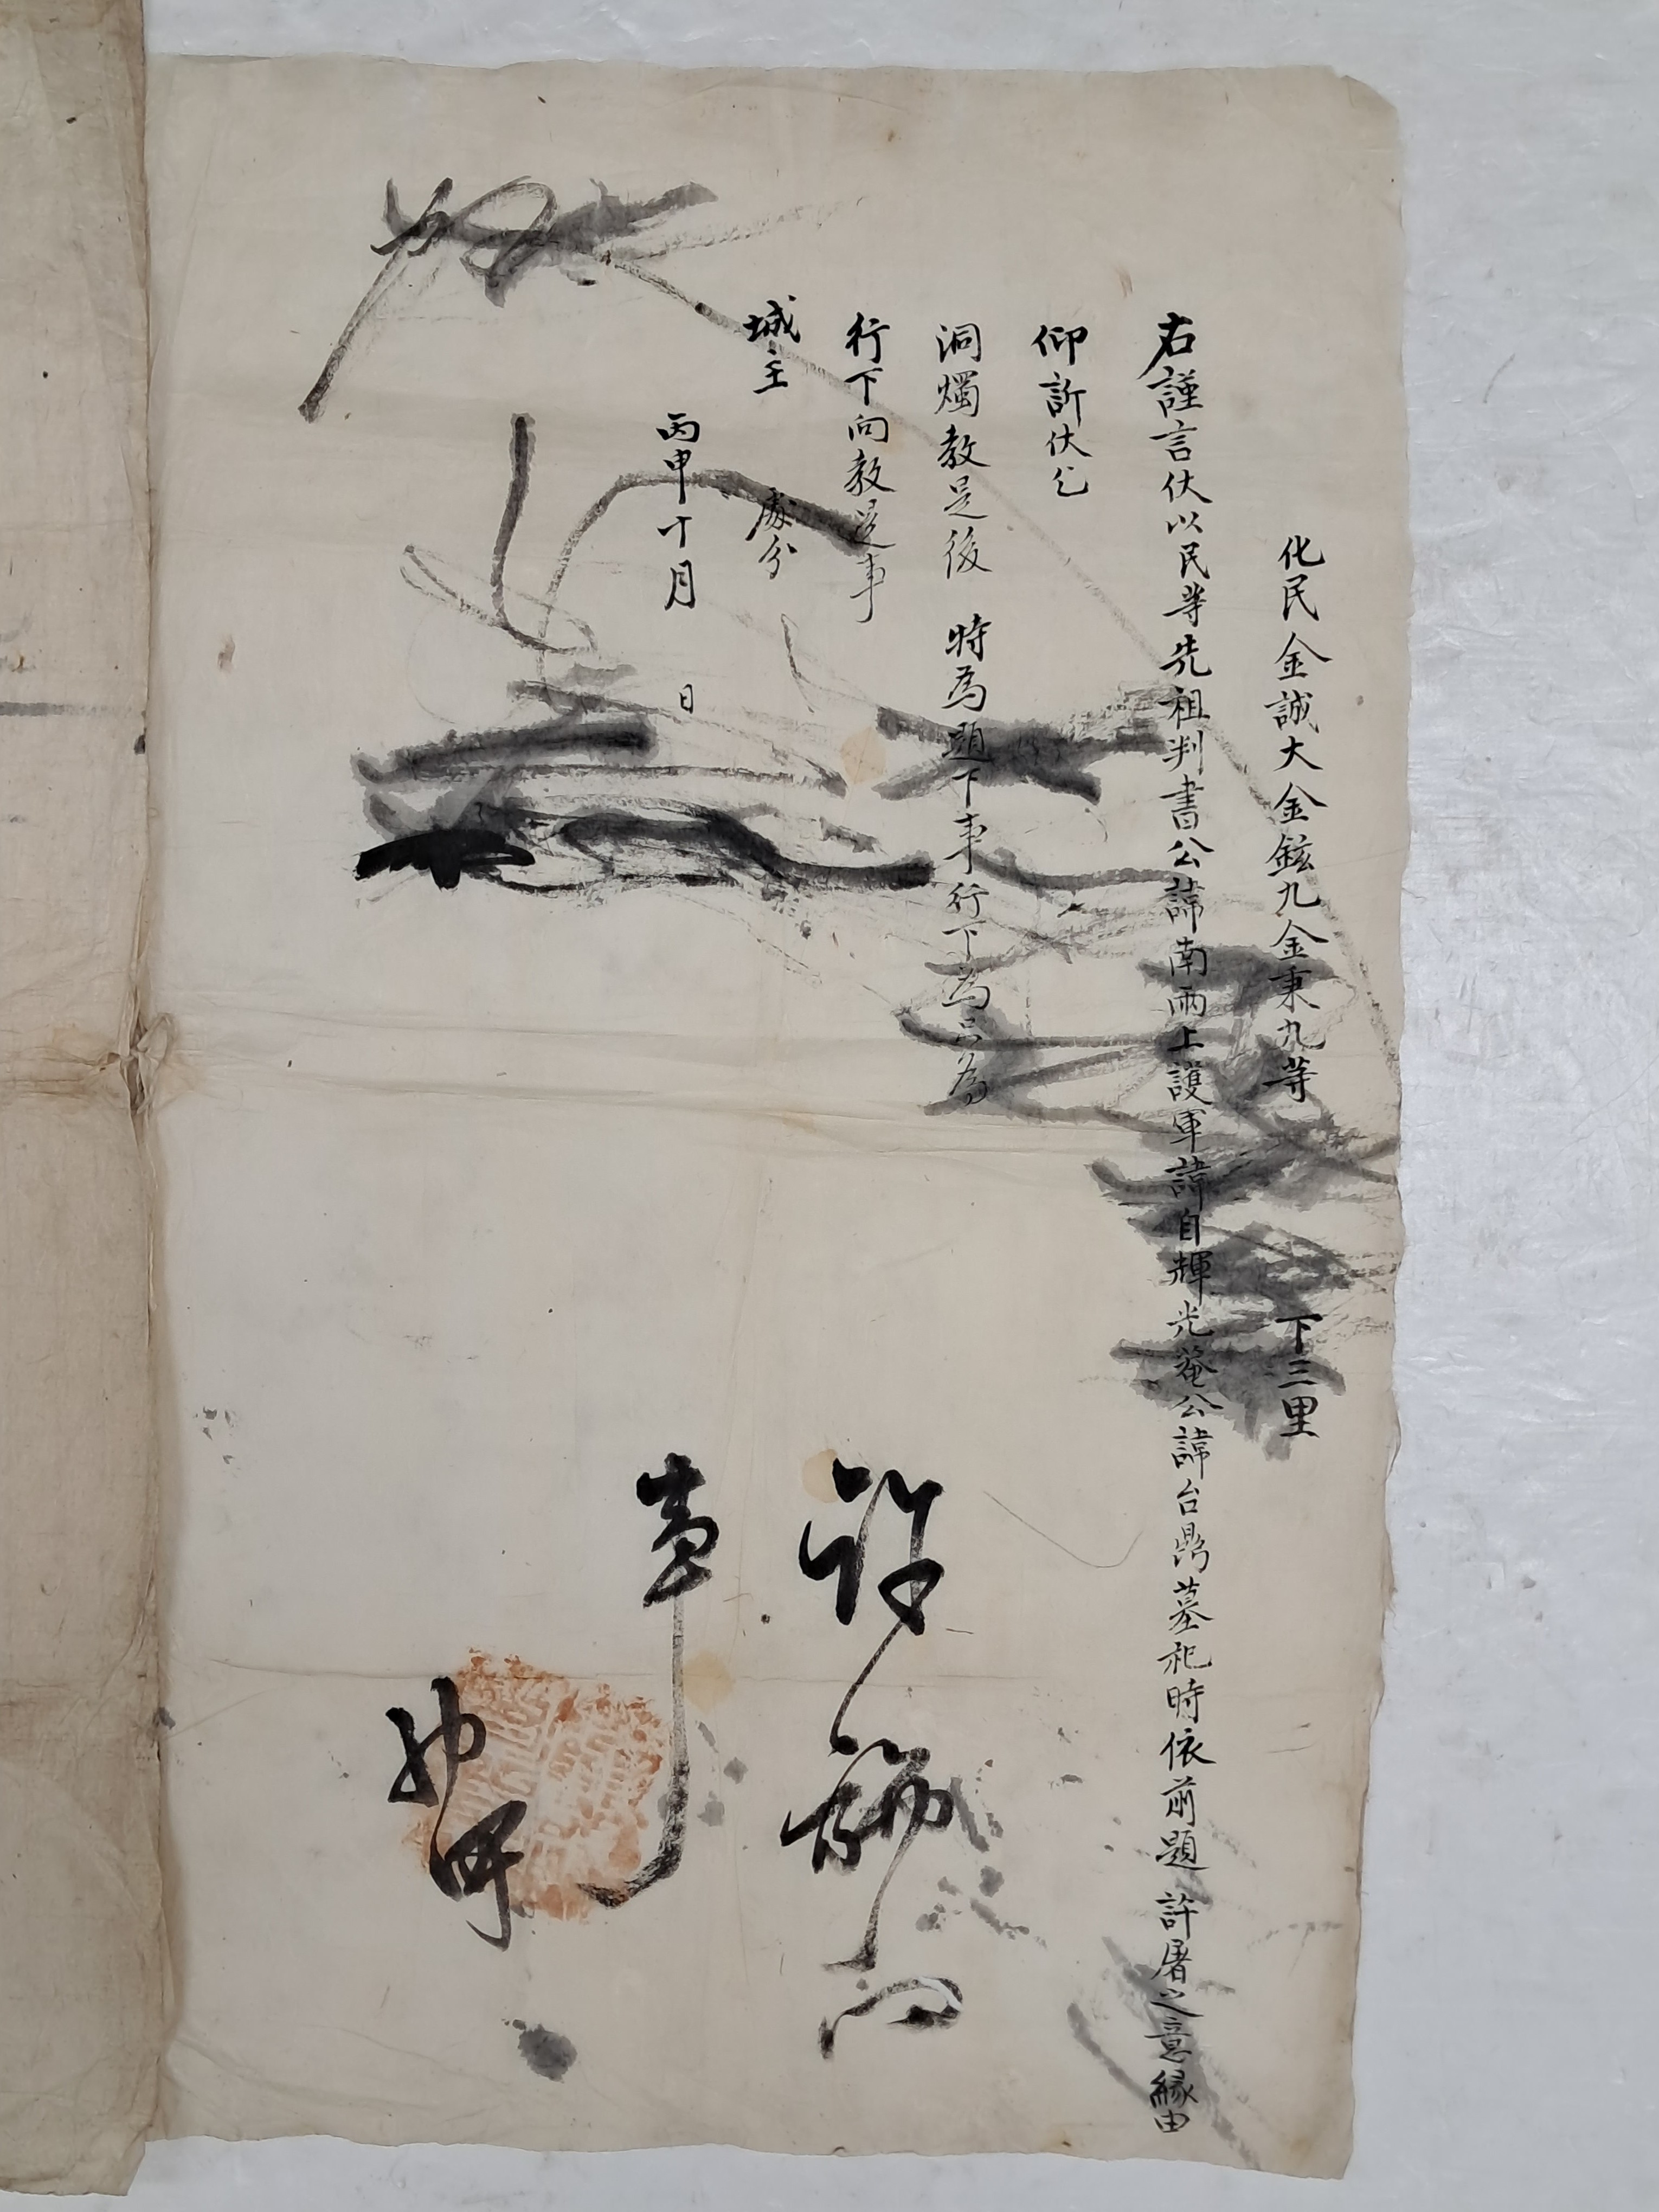 化民金誠大金鉉九金秉九等 下三里
右謹言伏以民等先祖判書公諱南雨上護軍諱自輝光菴公諱台鼎墓祀時依前題 許屠之意緣由
仰訴伏乞
洞燭教是後 特為題下事行下為只為
行下向教是事
城主 處分
丙申十月 日
許施向
事
初四